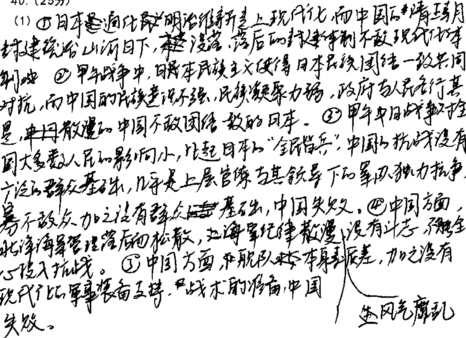 40.(25分)
(1) ①日本通过明治维新走上现代化,而中国的清王朝
封建统治山河日下,没落、落后的封建专制不敌现代化体
制。②甲午战争中,日本民族主义使得日本民族团结一致共同
对抗,而中国的民族意识不强,民族凝聚力弱,政府与人民各行其
是,散漫的中国不敌团结一致的日本。③甲午中日战争对全
国大多数人民的影响小,比起日本的“全民皆兵”,中国的抗战没有
广泛的群众基础,几乎是上层官僚与其领导下的军队独力抗争,
寡不敌众加之没有群众基础,中国失败。④中国方面,
北洋海军管理落后而松散,海军纪律散漫,没有斗志,不能全
心投入抗战。⑤中国方面,舰队本身底差,加之没有
现代化的军事装备支持,战术的准备,中国
失败。
风气糜乱